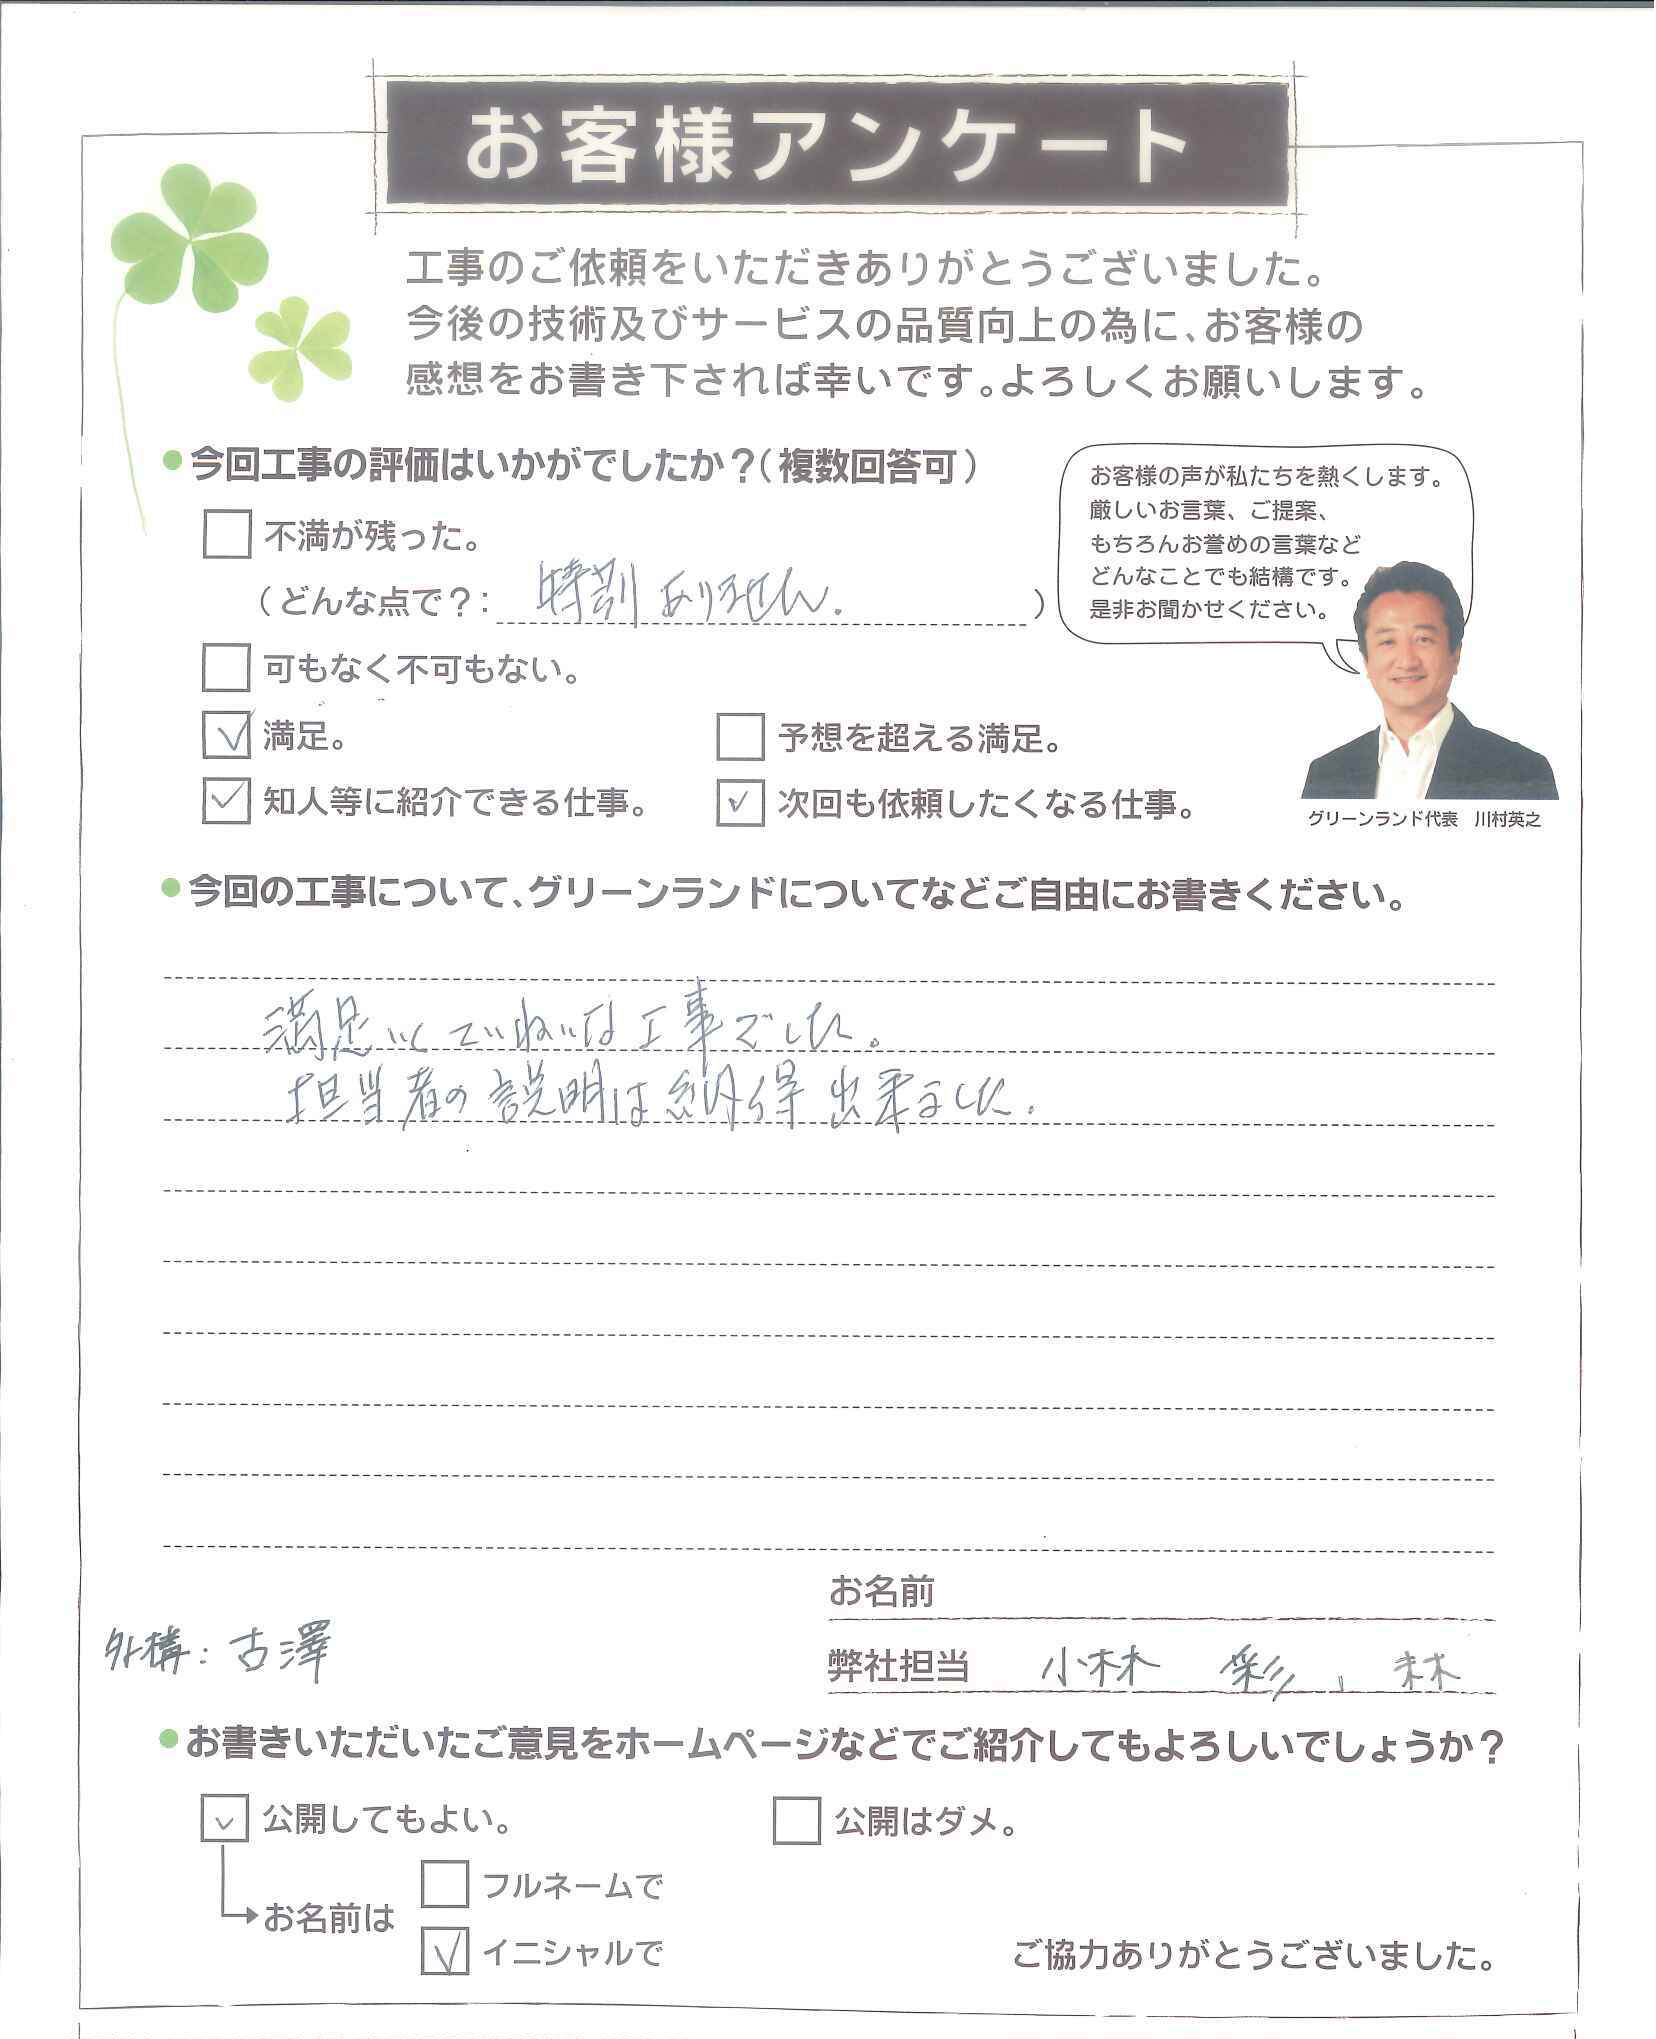 お客様アンケート
工事のご依頼をいただきありがとうございました。
今後の技術及びサービスの品質向上の為に、お客様の
感想をお書き下されば幸いです。よろしくお願いします。
今回工事の評価はいかがでしたか？（複数回答可）
お客様の声が私たちを熱くします。
厳しいお言葉、ご提案、
もちろんお誉めの言葉など
どんなことでも結構です。
是非お聞かせください。
不満が残った。
（どんな点で？： 特別ありません. ）
可もなく不可もない。
満足。
予想を超える満足。
知人等に紹介できる仕事。
次回も依頼したくなる仕事。
グリーンランド代表 川村英之
今回の工事について、グリーンランドについてなどご自由にお書きください。
満足いくていねいな工事でした。
担当者の説明は納得出来ました.
お名前
外構：古澤
弊社担当 小林 彩、林
お書きいただいたご意見をホームページなどでご紹介してもよろしいでしょうか？
公開してもよい。
公開はダメ。
お名前は
フルネームで
イニシャルで
ご協力ありがとうございました。